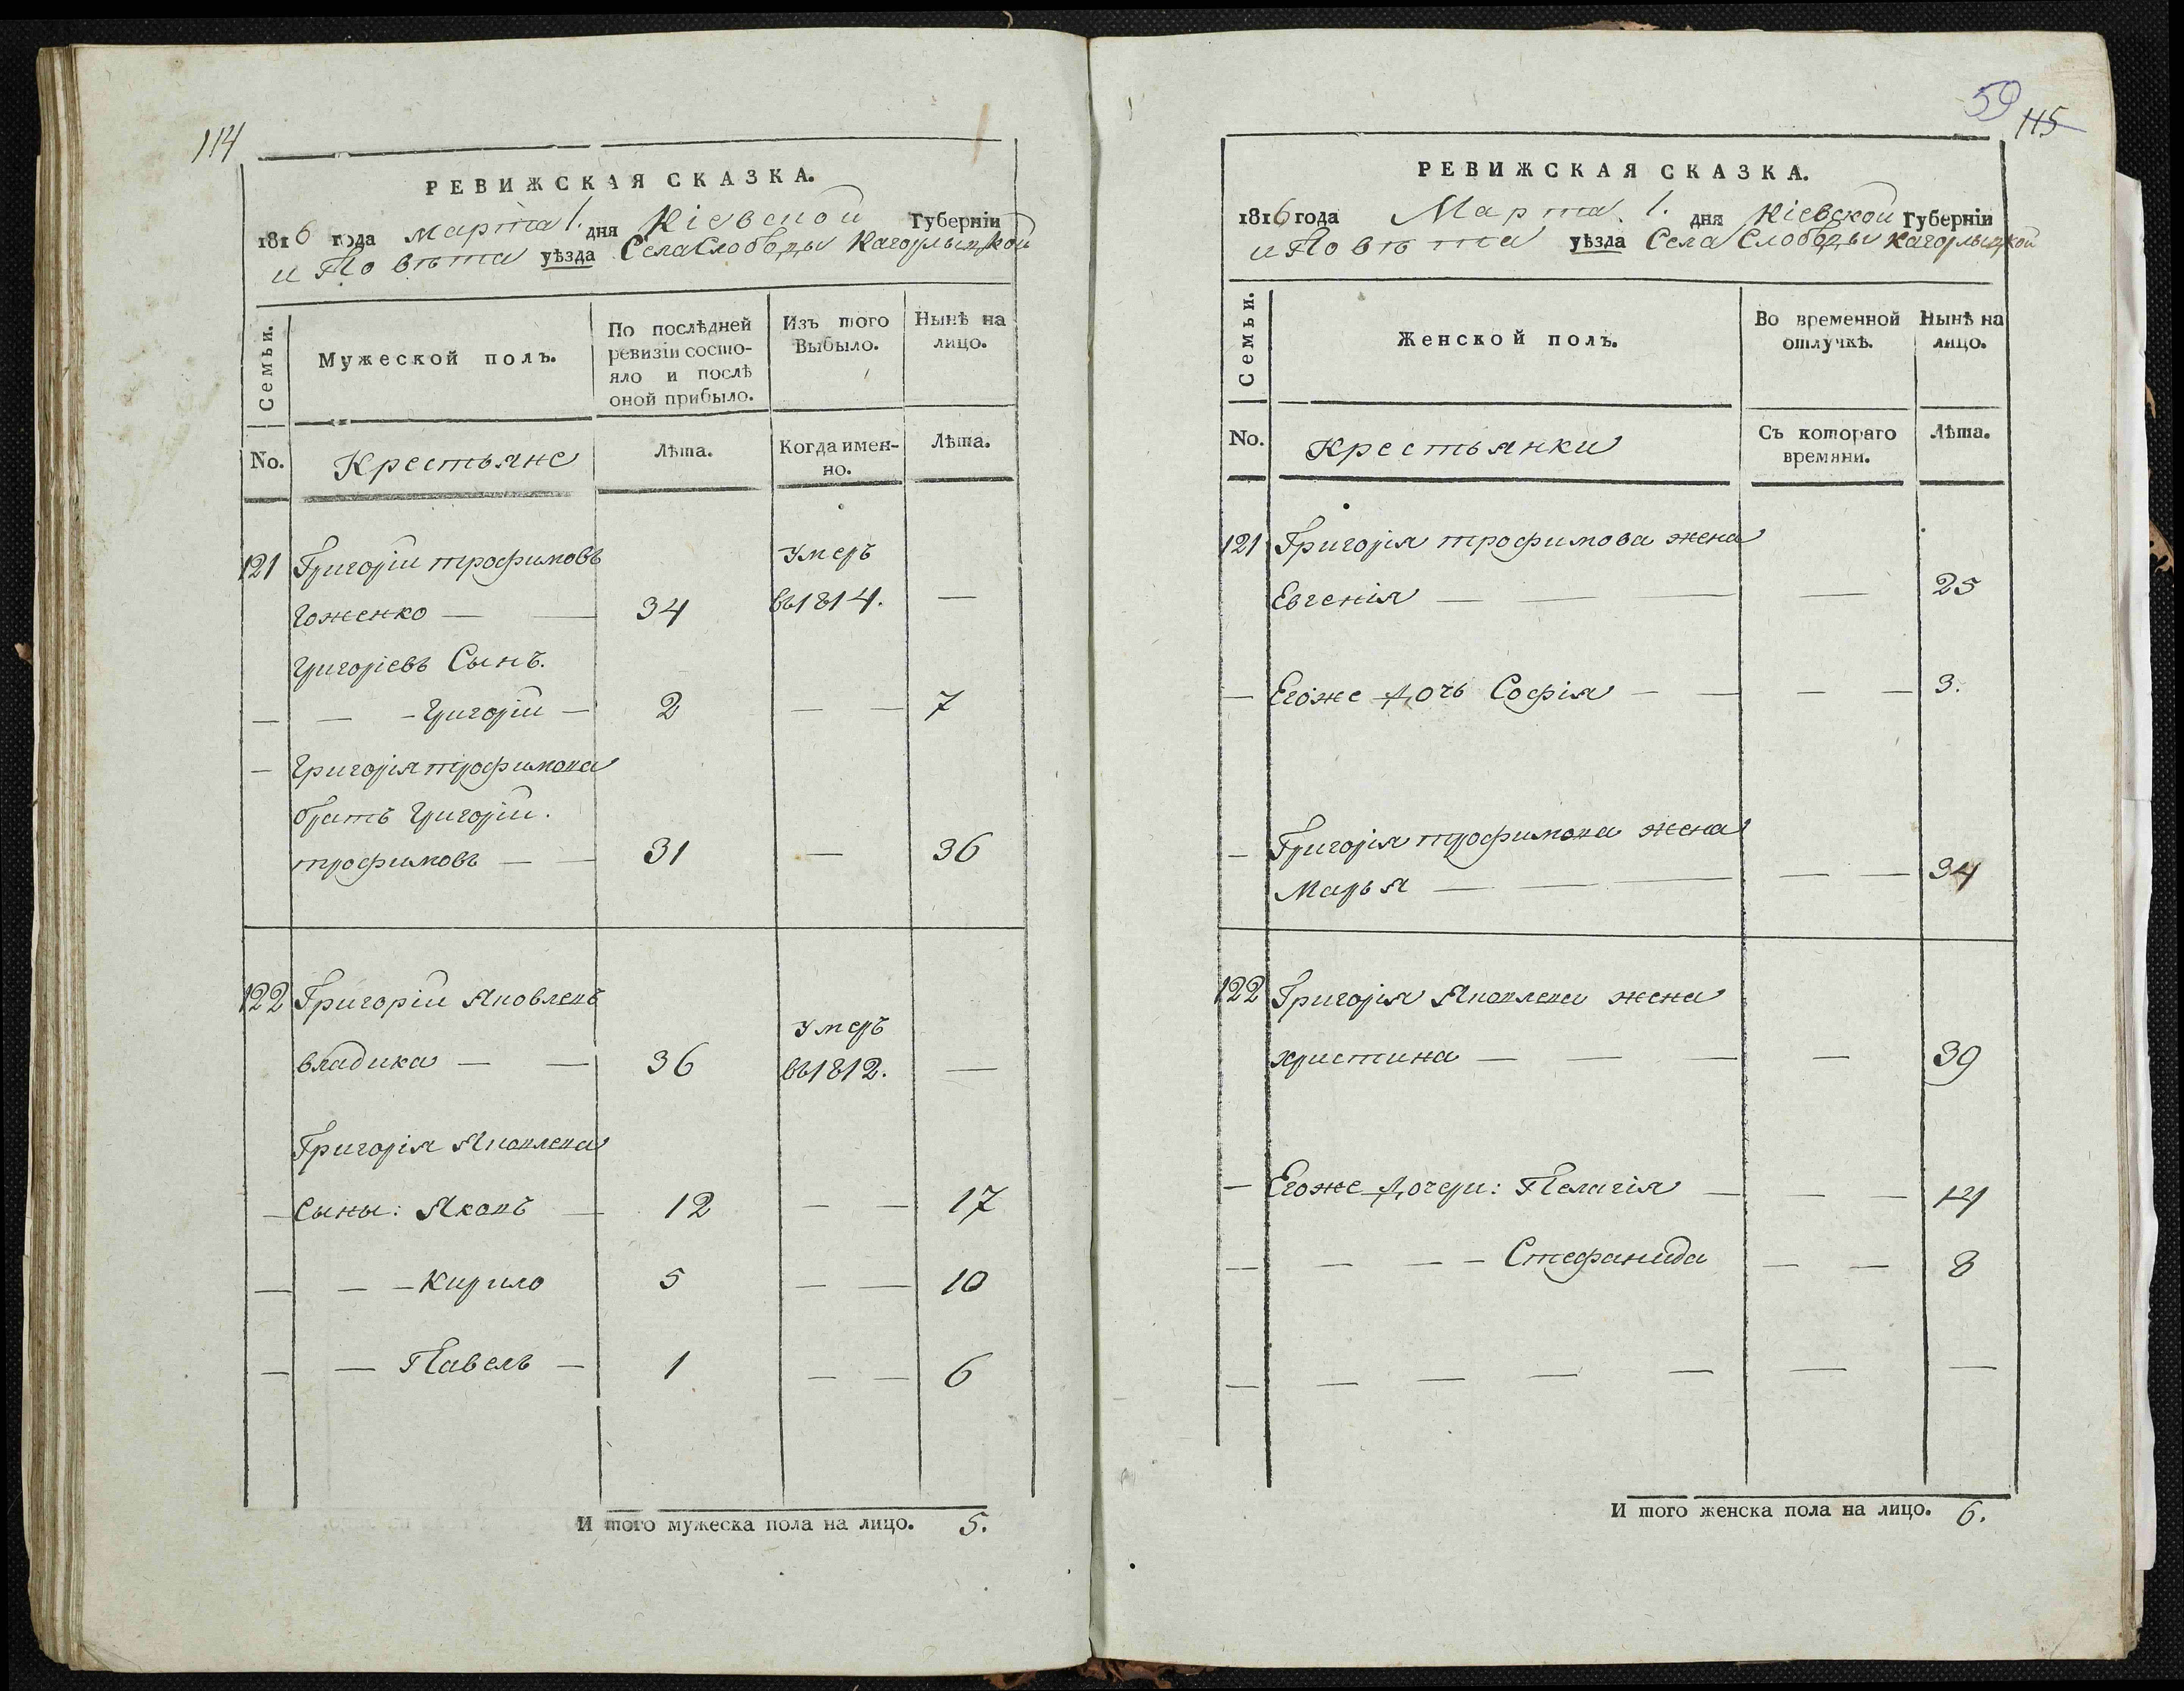 114
РЕВИЖСКАЯ СКАЗКА.
1816 года марта 1. дня Кіевской Губерніи
и Повѣта уѣзда Села Слободы Кагорлыцкой
Семьи.
Мужеской полъ.
По послѣдней ревизіи состо-
яло и послѣ оной прибыло.
Изъ того Выбыло.
Нынѣ на лицо.
No.
Крестьяне
Лѣта.
Когда имен-
но.
Лѣта.
121 Григоріи трофимовъ умеръ
Гоженко — — 34 въ 1814. —
Григоріевъ Сынъ.
— — - Григоріи — 2 — — 7
— Григорія трофимова
братъ Григоріи.
трофимовъ — — 31 — 36
122 Григоріи Яковлевъ умеръ
владика — — 36 въ 1812. —
Григорія Яковлева
— Сыны: Яковъ — 12 — — 17
— — — Кирило 5 — — 10
— — Павелъ — 1 — — 6
И того мужеска пола на лицо. 5.
59
115
РЕВИЖСКАЯ СКАЗКА.
1816 года Марта 1. дня Кіевской Губерніи
и Повѣта уѣзда Села Слободы Кагорлыцкой
Семьи.
Женской полъ.
Во временной отлучкѣ.
Нынѣ на лицо.
No.
Крестьянки
Съ котораго времяни.
Лѣта.
121 Григорія трофимова жена
Евгенія — — — — 25
— Егоже дочь Софія — — — — 3.
— Григорія трофимова жена
Марья — — — — — 34
122 Григорія Яковлева жена
христина — — — — 39
— Егоже дочери: Пелагія — — — 14
— — — — Стефанида — — 8
— — — — — — —
И того женска пола на лицо. 6.